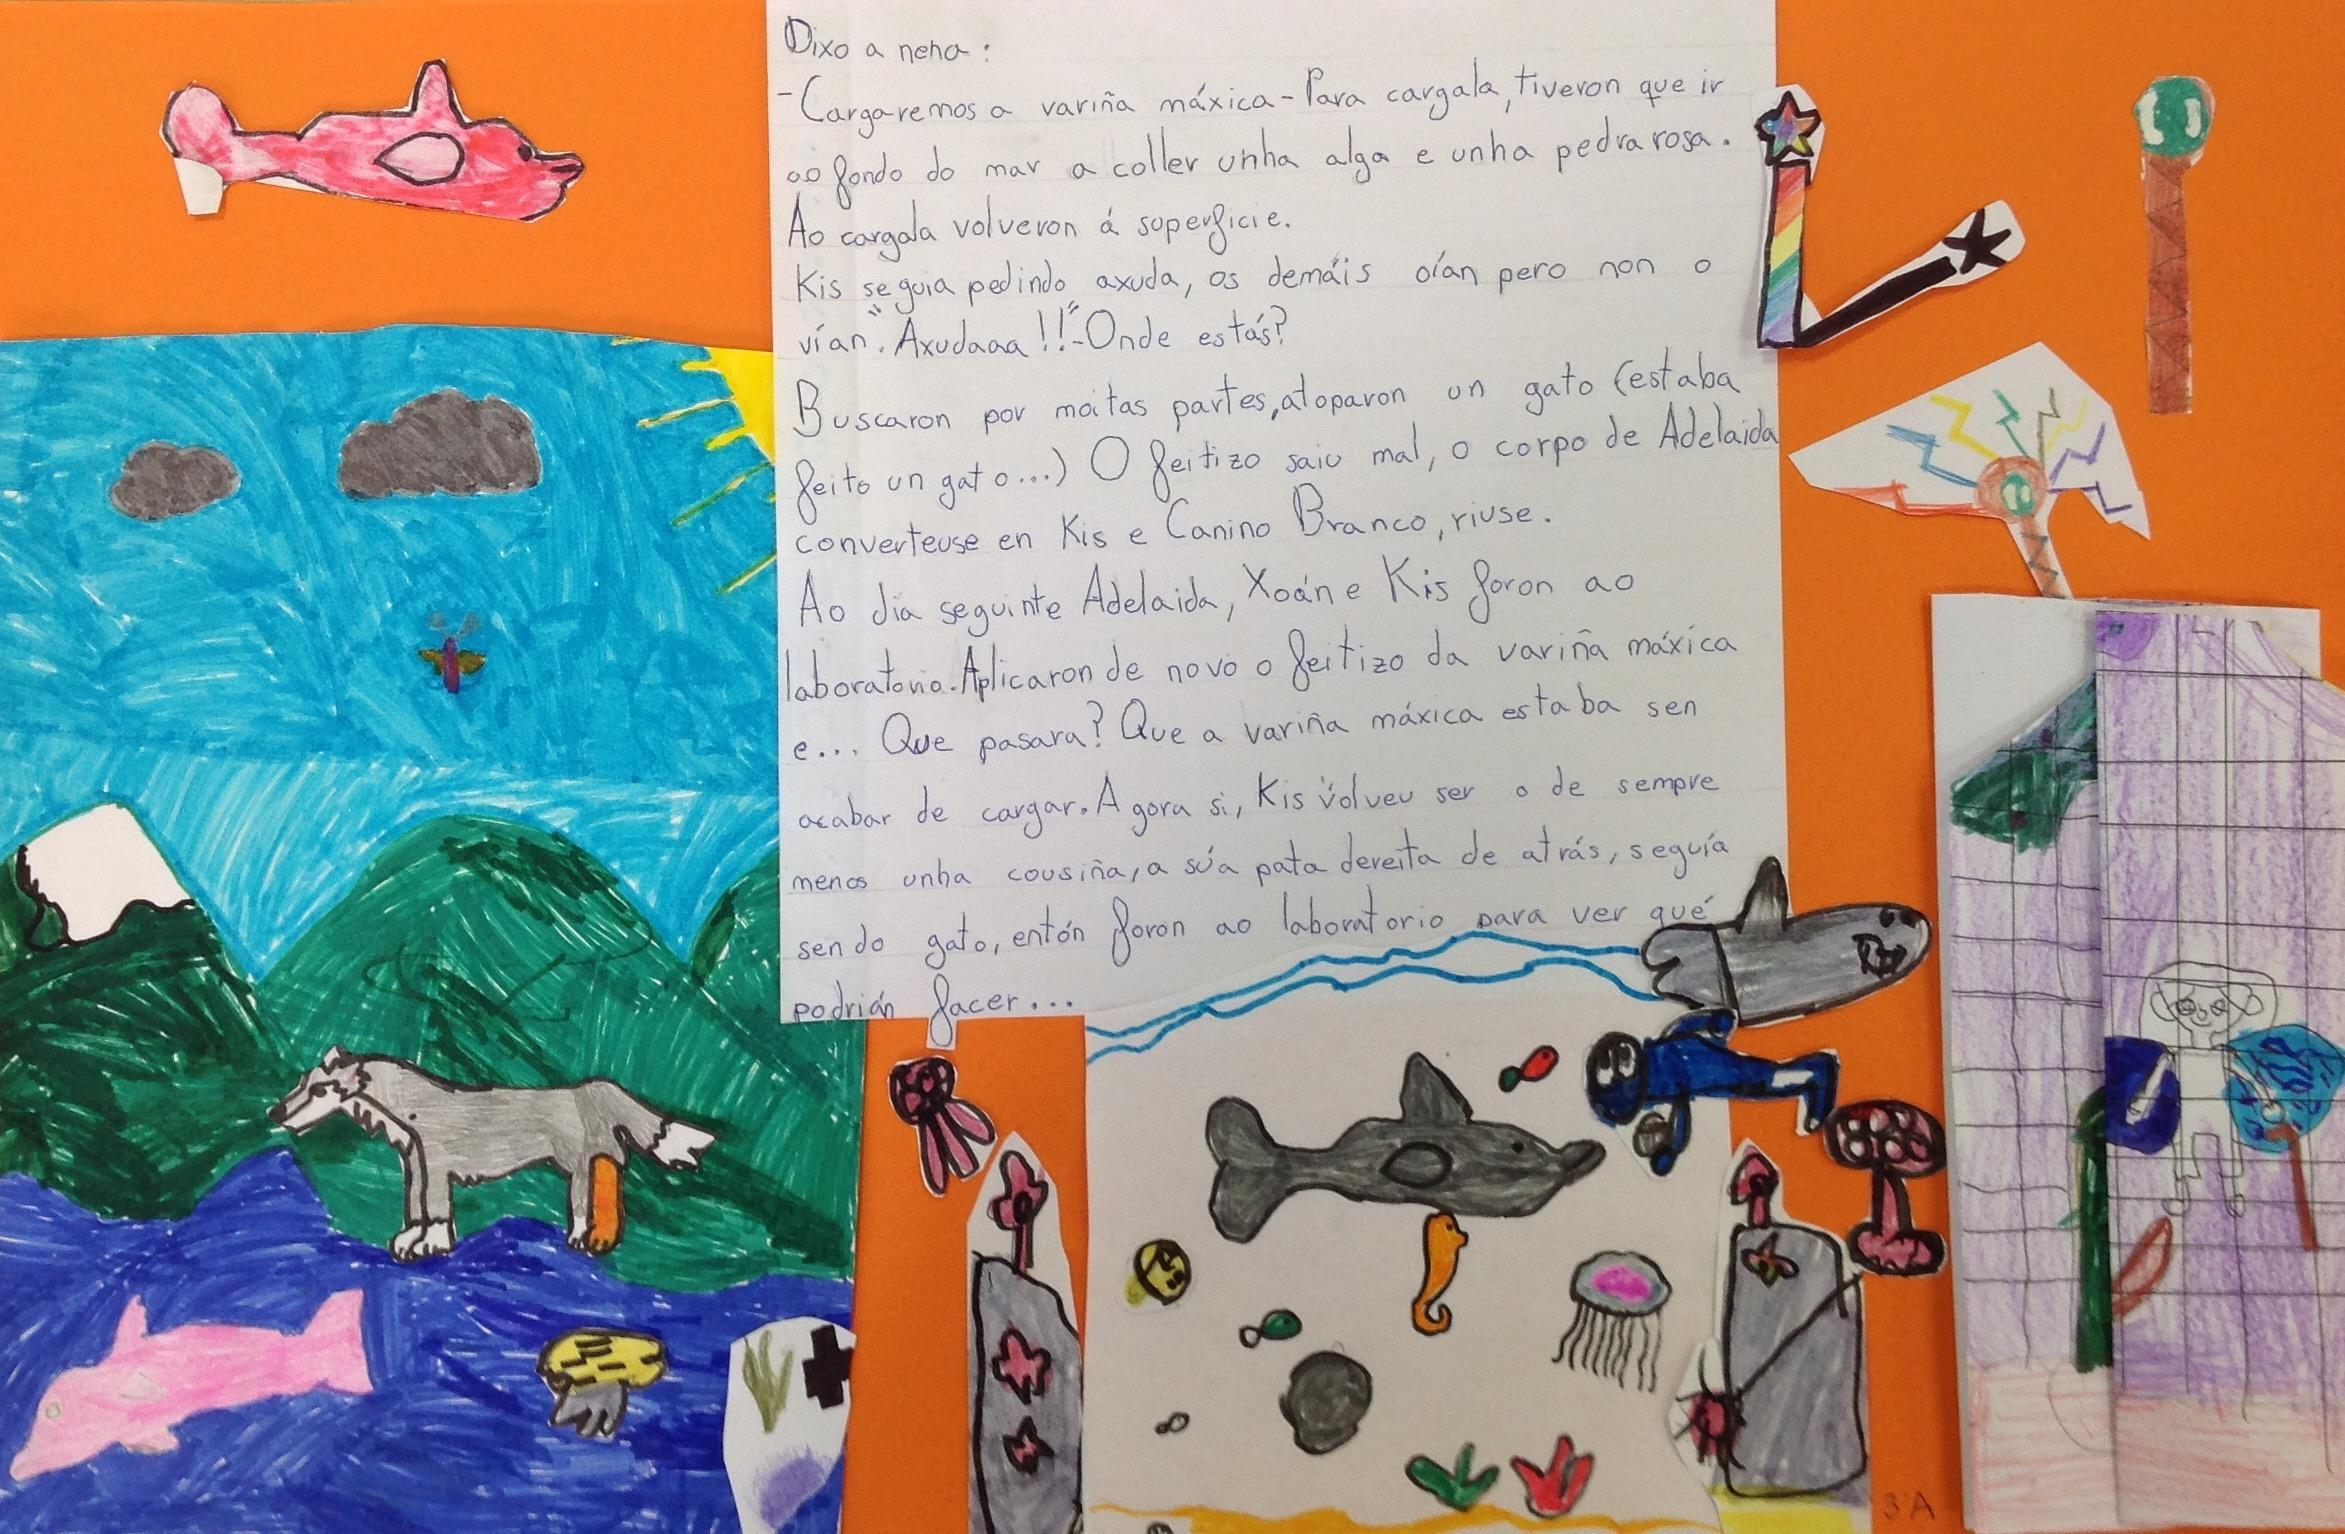 Dixo a nena:
-Cargaremos a variña máxica-Para cargala, tiveron que ir
ao fondo do mar a coller unha alga e unha pedra rosa.
Ao cargala volveron á superficie.
Kis seguia pedindo axuda, os demáis oían pero non o
vían. "Axudaaa!!"-Onde estás?
Buscaron por moitas partes, atoparon un gato (estaba
feito un gato...) O feitizo saiu mal, o corpo de Adelaida
converteuse en Kis e Canino Branco, riuse.
Ao día seguinte Adelaida, Xoán e Kis foron ao
laboratorio. Aplicaron de novo o feitizo da variña máxica
e... Que pasara? Que a variña máxica estaba sen
acabar de cargar. Agora si, Kis volveu ser o de sempre
menos unha cousiña, a súa pata dereita de atrás, seguía
sendo gato, entón foron ao laboratorio para ver qué
podrián facer...
3ºA